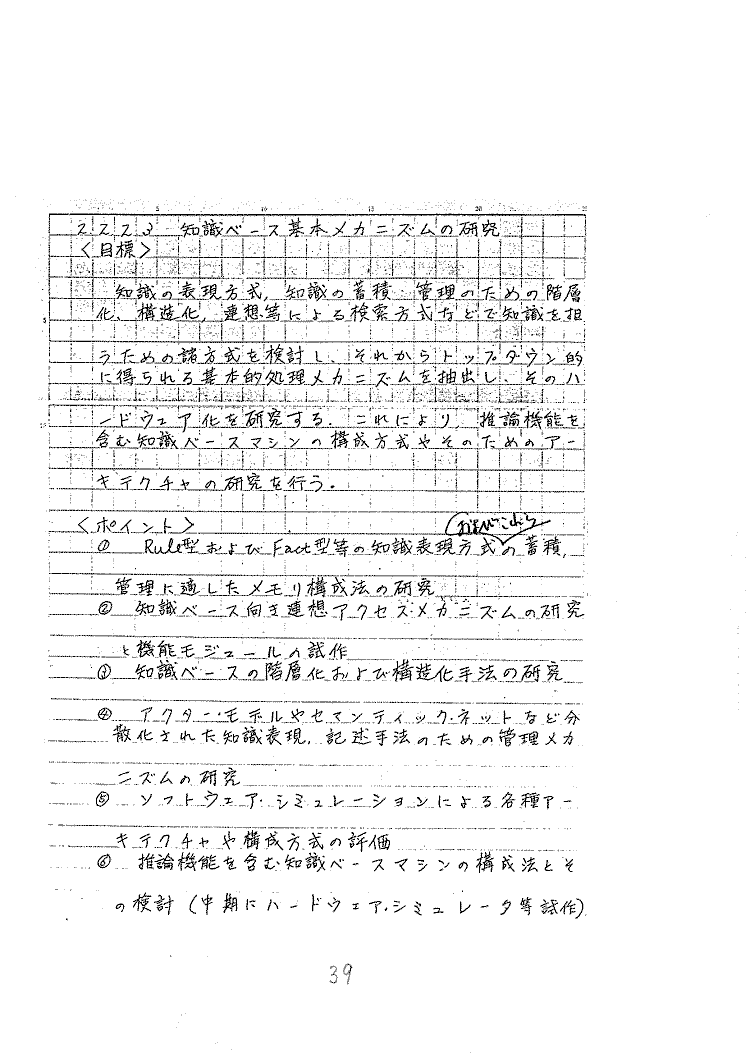 2.2.2.3 知識ベース基本メカニズムの研究
〈目標〉
知識の表現方式, 知識の蓄積・管理のための階層
化, 構造化, 連想等による検索方式などで知識を担
うための諸方式を検討し、それからトップダウン的
に得られる基本的処理メカニズムを抽出し、そのハ
ードウェア化を研究する. これにより, 推論機能を
含む知識ベースマシンの構成方式やそのためのアー
キテクチャの研究を行う.
〈ポイント〉
およびこれら
① Rule型およびFact型等の知識表現方式の蓄積,
管理に適したメモリ構成法の研究
② 知識ベース向き連想アクセス・メカニズムの研究
と機能モジュールの試作
③ 知識ベースの階層化および構造化手法の研究
④ アクター・モデルやセマンティック・ネットなど分
散化された知識表現, 記述手法のための管理メカ
ニズムの研究
⑤ ソフトウェア・シミュレーションによる各種アー
キテクチャや構成方式の評価
⑥ 推論機能を含む知識ベースマシンの構成法とそ
の検討 (中期にハードウェア・シミュレータ等試作)
39